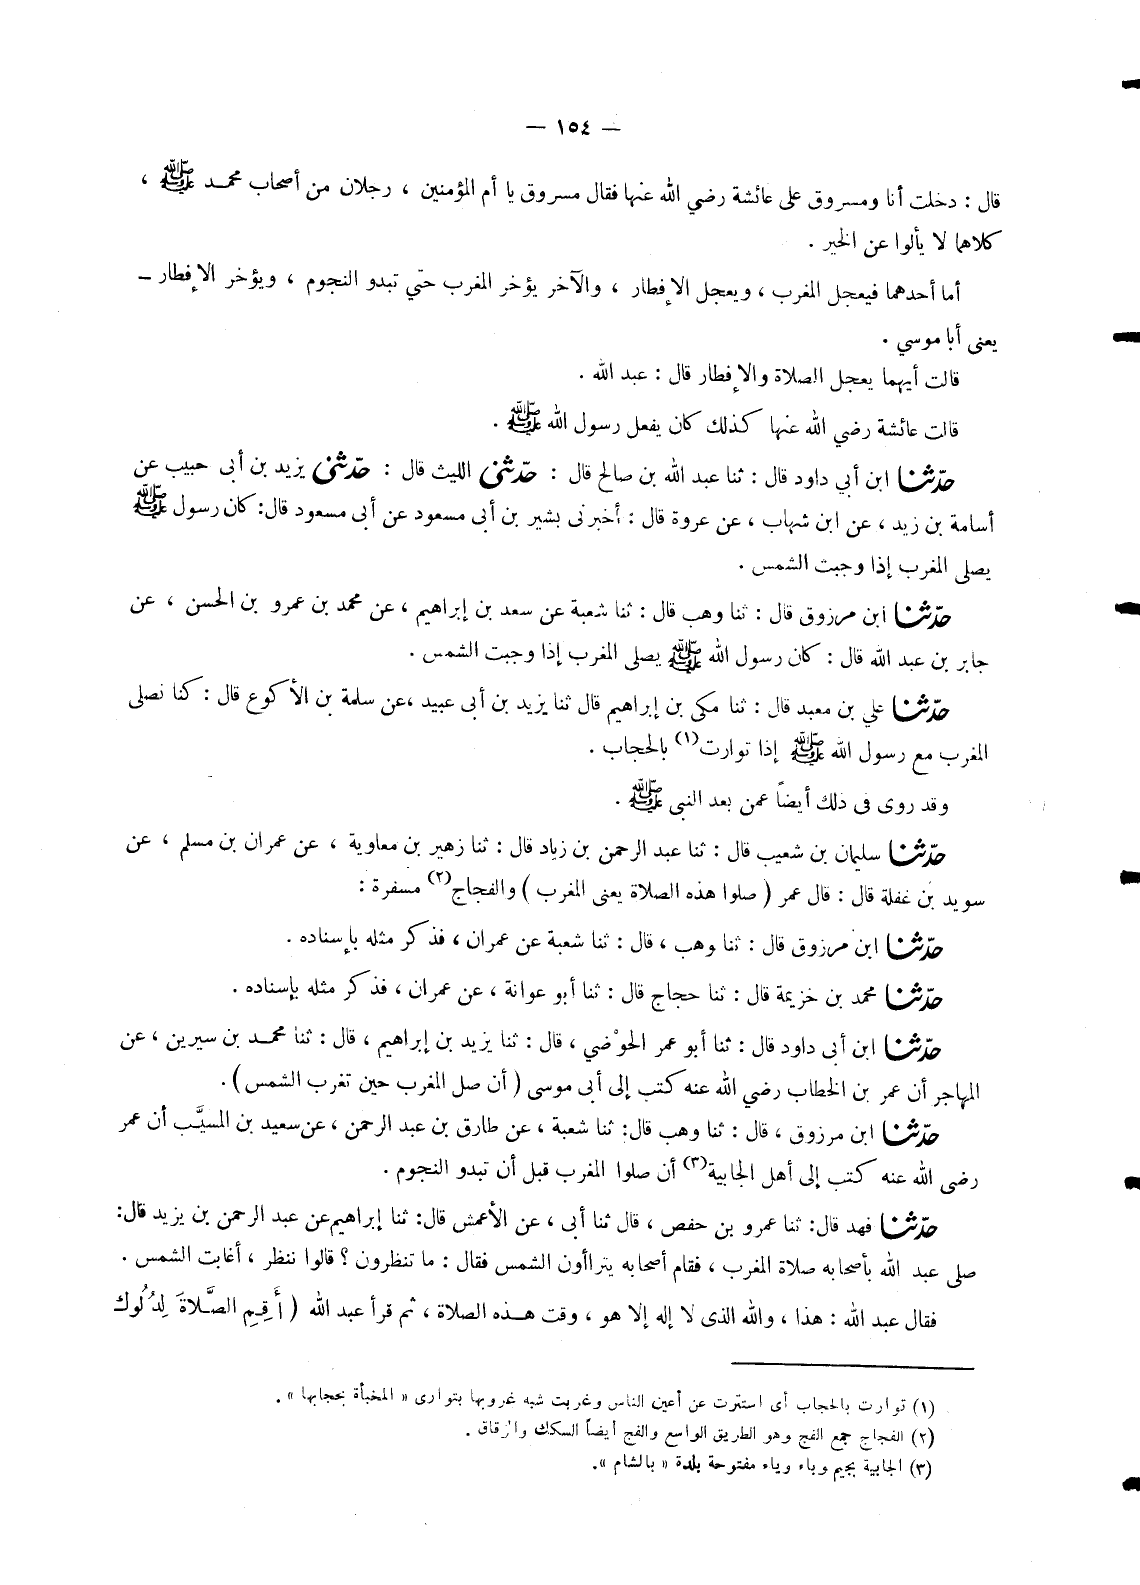 — ١٥٤ —
قال : دخلت أنا ومسروق على عائشة رضي الله عنها فقال مسروق يا أم المؤمنين ، رجلان من أصحاب محمد ﷺ ،
كلاهما لا يألوا عن الخير .
أما أحدهما فيعجل المغرب ، ويعجل الإفطار ، والآخر يؤخر المغرب حتي تبدو النجوم ، ويؤخر الإفطار –
يعنى أبا موسي .
قالت أيهما يعجل الصلاة والإفطار قال : عبد الله .
قالت عائشة رضي الله عنها كذلك كان يفعل رسول الله ﷺ .
حدّثنا ابن أبي داود قال : ثنا عبد الله بن صالح قال : حدّثني الليث قال : حدّثني يزيد بن أبى حبيب عن
أسامة بن زيد ، عن ابن شهاب ، عن عروة قال : أخبرنى بشير بن أبى مسعود عن أبى مسعود قال: كان رسول ﷺ
يصلى المغرب إذا وجبت الشمس .
حدّثنا ابن مرزوق قال : ثنا وهب قال : ثنا شعبة عن سعد بن إبراهيم ، عن محمد بن عمرو بن الحسن ، عن
جابر بن عبد الله قال : كان رسول الله ﷺ يصلى المغرب إذا وجبت الشمس .
حدّثنا علي بن معبد قال : ثنا مكى بن إبراهيم قال ثنا يزيد بن أبى عبيد ،عن سلمة بن الأكوع قال : كنا نصلى
المغرب مع رسول الله ﷺ إذا توارت(١) بالحجاب .
وقد روى فى ذلك أيضاً عمن بعد النبى ﷺ .
حدّثنا سليمان بن شعيب قال : ثنا عبد الرحمن بن زياد قال : ثنا زهير بن معاوية ، عن عمران بن مسلم ، عن
سويد بن غفلة قال : قال عمر ( صلوا هذه الصلاة يعنى المغرب ) والفجاج(٢) مسفرة :
حدّثنا ابن مرزوق قال : ثنا وهب ، قال : ثنا شعبة عن عمران ، فذكر مثله بإسناده .
حدّثنا محمد بن خزيمة قال : ثنا حجاج قال : ثنا أبو عوانة ، عن عمران ، فذكر مثله بإسناده .
حدّثنا ابن أبى داود قال : ثنا أبو عمر الحوْضي ، قال : ثنا يزيد بن إبراهيم ، قال : ثنا محمد بن سيرين ، عن
المهاجر أن عمر بن الخطاب رضي الله عنه كتب إلى أبى موسى ( أن صل المغرب حين تغرب الشمس ) .
حدّثنا ابن مرزوق ، قال : ثنا وهب قال: ثنا شعبة ، عن طارق بن عبد الرحمن ، عن سعيد بن المسيَّب أن عمر
رضى الله عنه كتب إلى أهل الجابية(٣) أن صلوا المغرب قبل أن تبدو النجوم .
حدّثنا فهد قال: ثنا عمرو بن حفص ، قال ثنا أبى ، عن الأعمش قال: ثنا إبراهيم عن عبد الرحمن بن يزيد قال:
صلى عبد الله بأصحابه صلاة المغرب ، فقام أصحابه يتراأون الشمس فقال : ما تنظرون ؟ قالوا ننظر ، أغابت الشمس .
فقال عبد الله : هذا ، والله الذى لا إله إلا هو ، وقت هذه الصلاة ، ثم قرأ عبد الله ( أَقِمِ الصَّلاةَ لِدُلُوك
(١) توارت بالحجاب أى استترت عن أعين الناس وغربت شبه غروبها بتوارى « المخبأة بحجابها » .
(٢) الفجاج جمع الفج وهو الطريق الواسع والفج أيضاً السكك والزقاق .
(٣) الجابية بجيم وباء وياء مفتوحة بلدة « بالشام ».